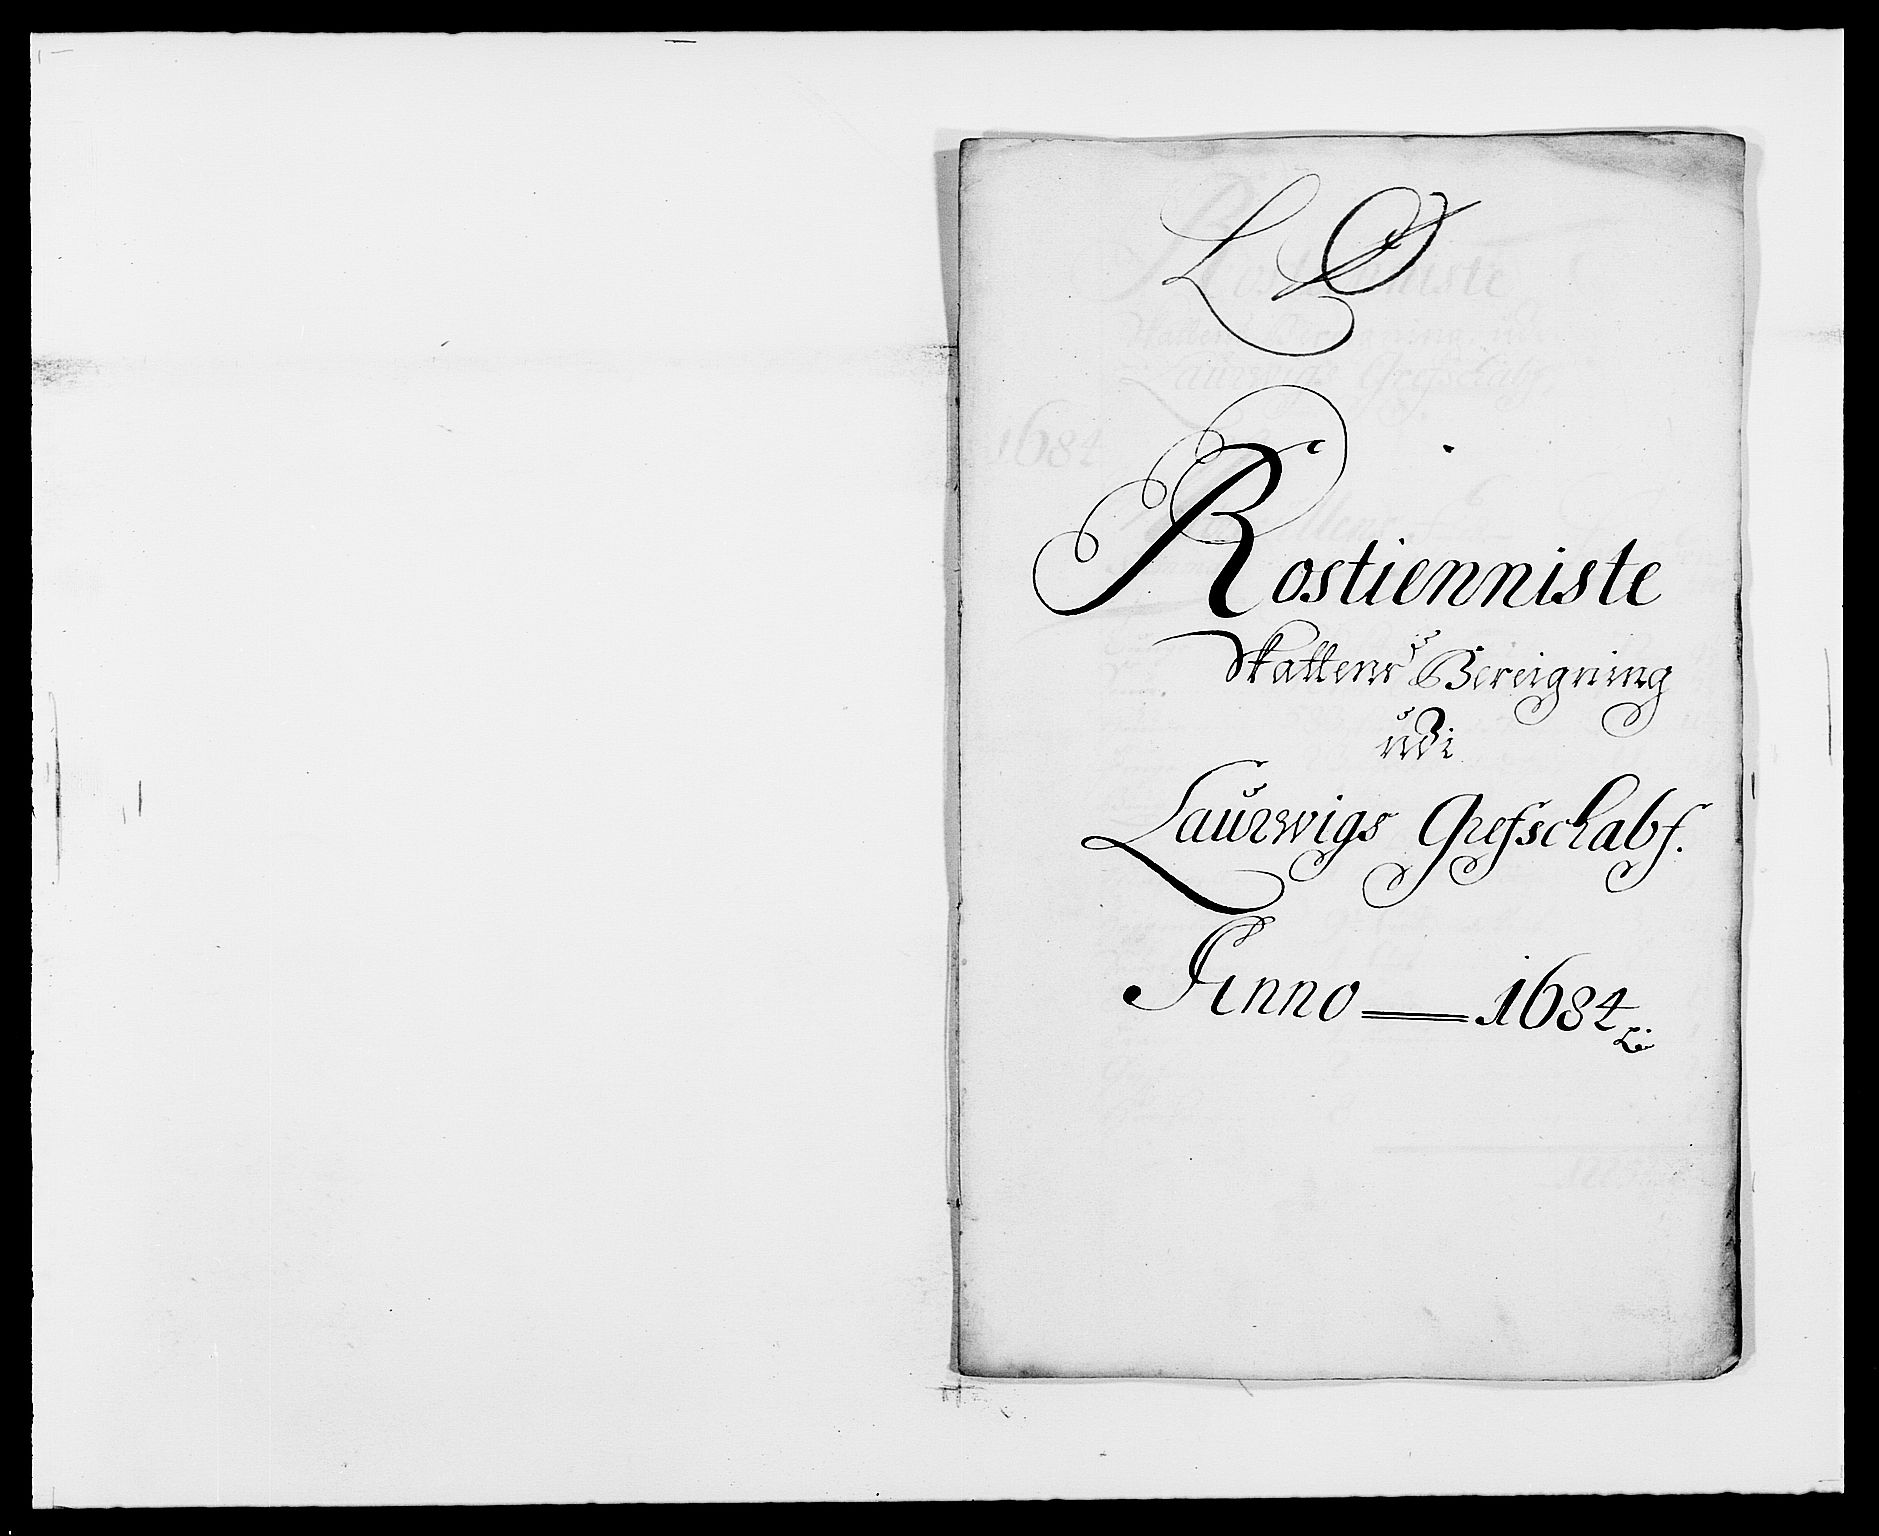 L O
Rostienniste
Skattens Bereigning
udi
Laurwigs Grefschabf.
Anno 1684